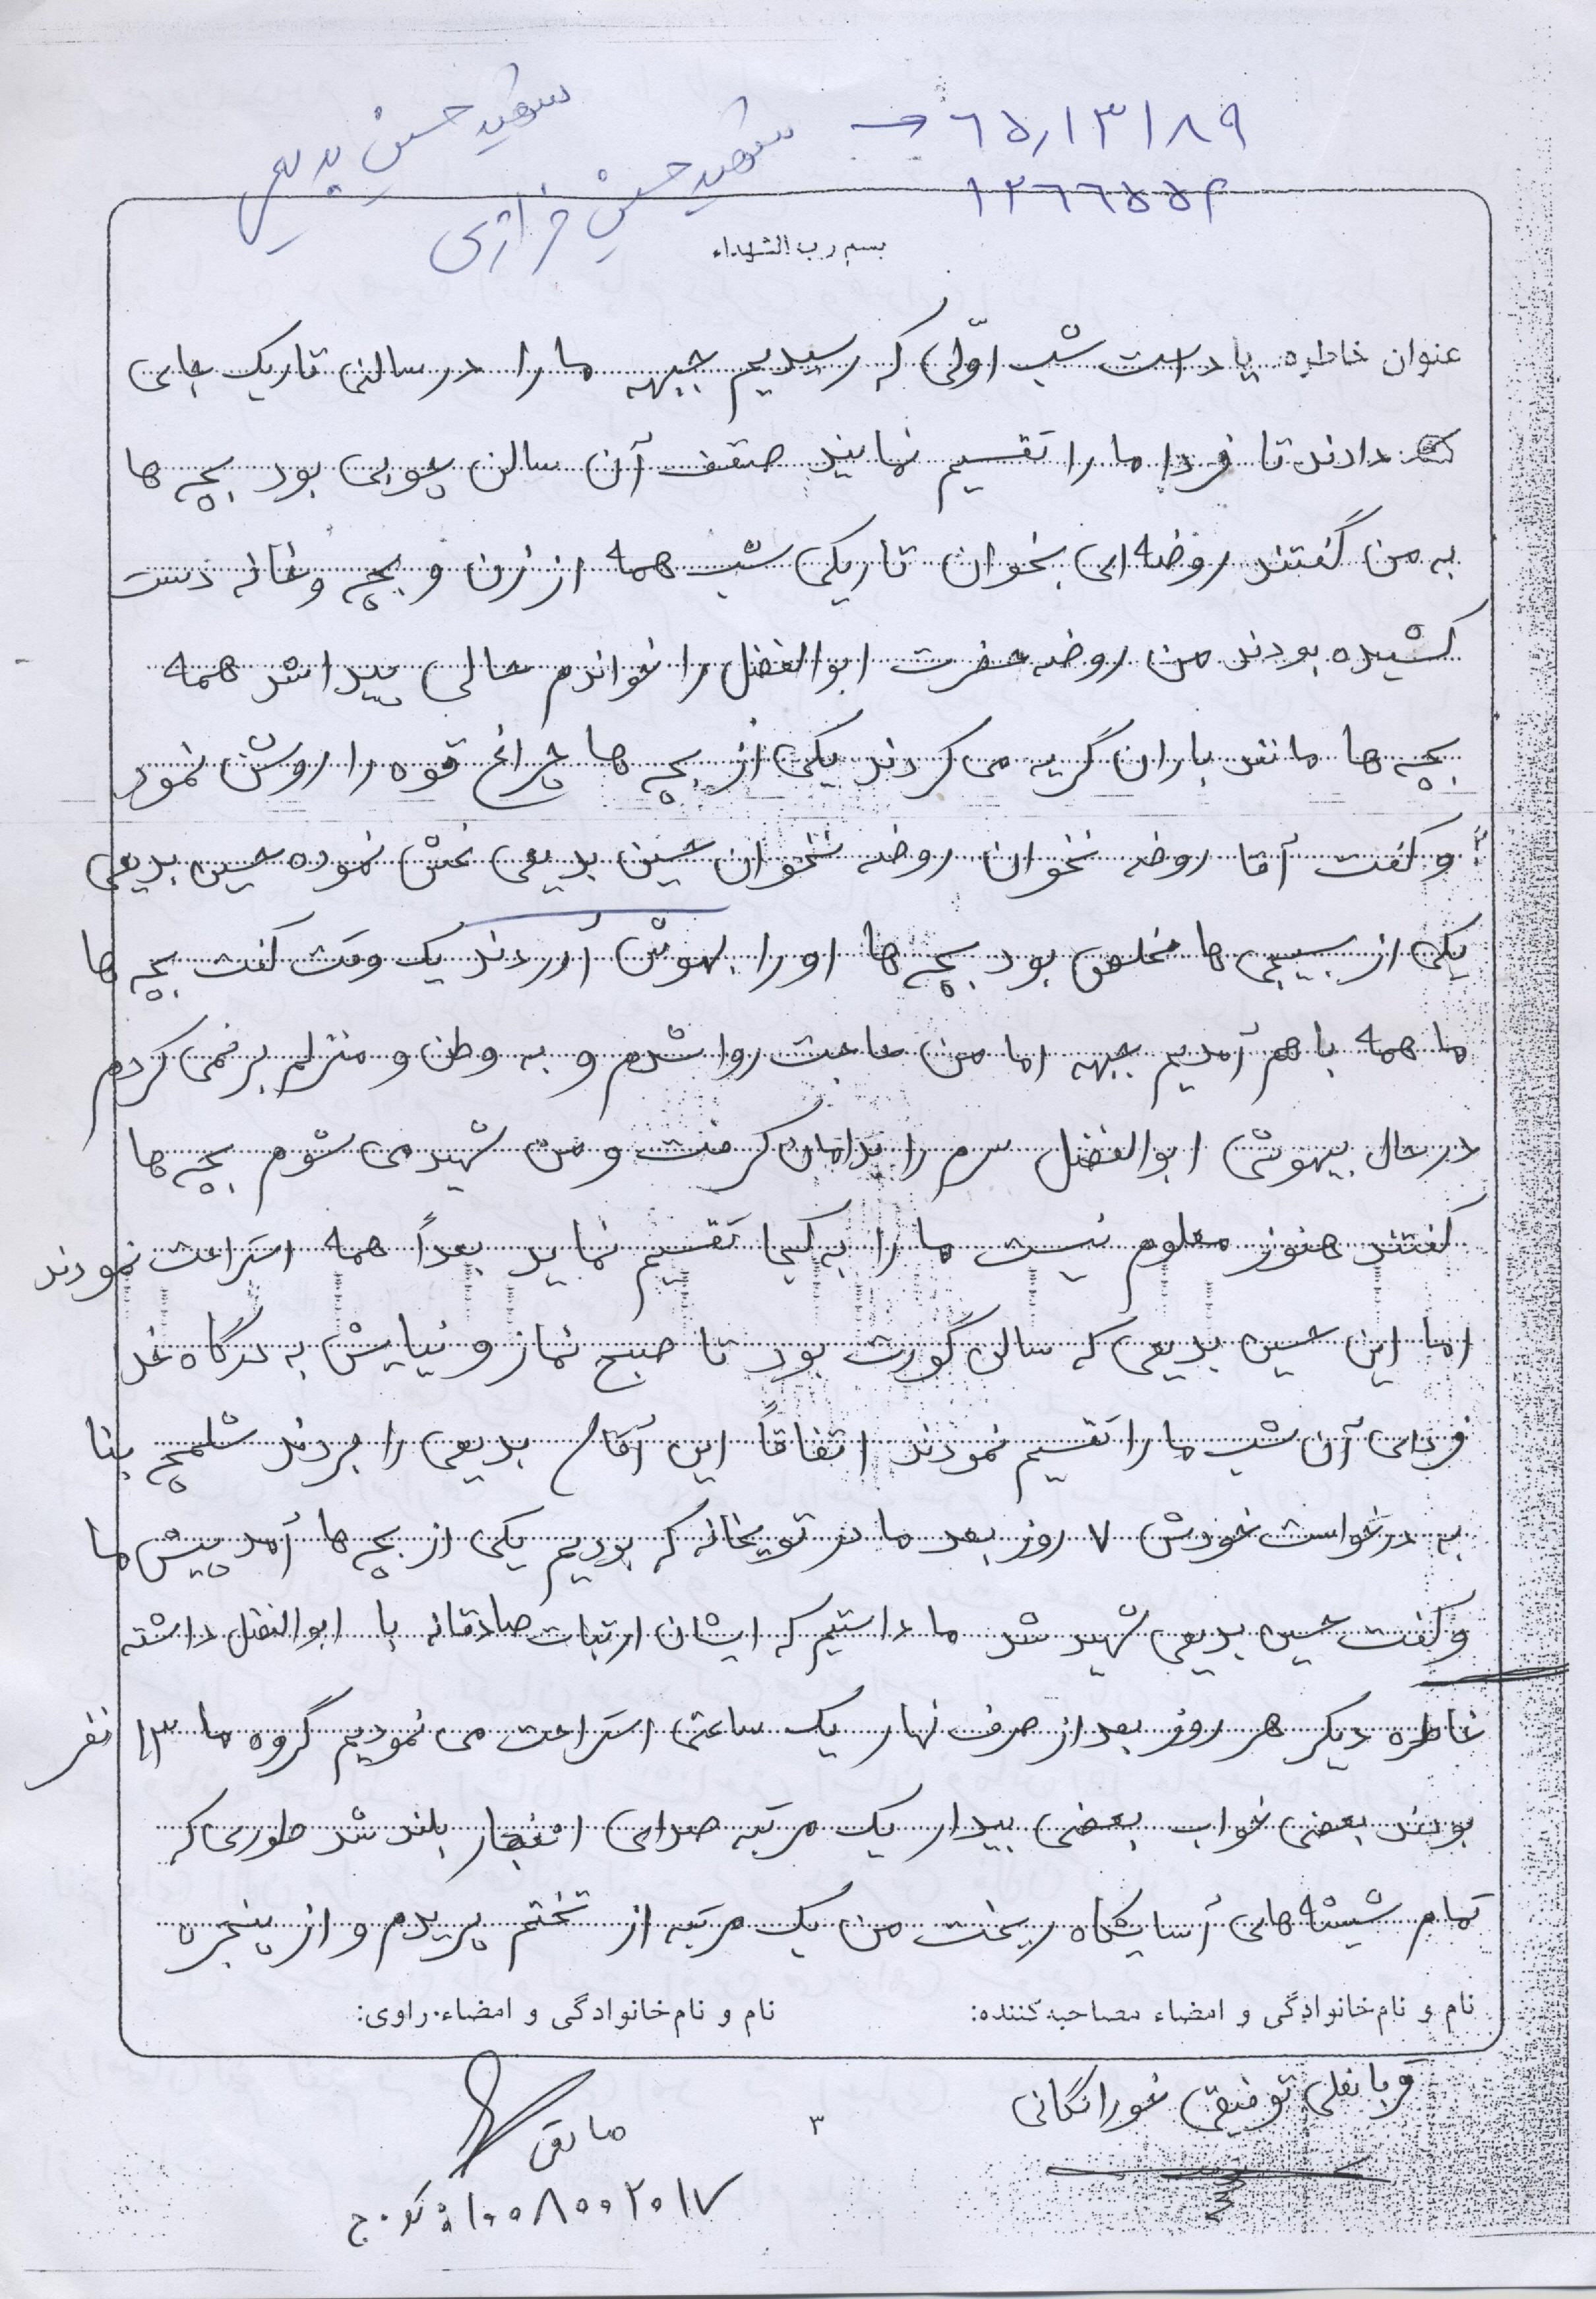 شهید حسین بدیعی
شهید حسین خرازی ← ۶۵٫۱۳۱۸۹
۱۲۶۶۵۵۴
بسم رب الشهداء
عنوان خاطره یاد است شب اوّلی که رسیدیم جبهه ما را در سالنی تاریک جای
دادند تا فردا ما را تقسیم نمایند صقف آن سالن چوبی بود بچه ها
به من گفتند روضه ای بخوان تاریکی شب همه از زن و بچه و خانه دست
کشیده بودند من روضه حضرت ابوالفضل را خواندم حالی پیدا شد همه
بچه ها مانند باران گریه می کردند یکی از بچه ها چراغ قوه را روشن نمود
و گفت آقا روضه نخوان روضه نخوان حسین بدیعی غش نموده حسین بدیعی
یکی از بسیجی ها مخلص بود بچه ها او را بهوش آوردند یک وقت گفت بچه ها
ما همه با هم آمدیم جبهه اما من حاجت روا شدم و به وطن و منزلم برنمی گردم
در حال بیهوشی ابوالفضل سرم را بدامان گرفت و من شهید می شوم بچه ها
گفتند هنوز معلوم نیست ما را به کجا تقسیم نماید بعداً همه استراحت نمودند
اما این حسین بدیعی که سالن گورت بود تا صبح نماز و نیایش به درگاه خدا
فردای آن شب ما را تقسیم نمودند اتفاقاً این آقای بدیعی را بردند شلمچه بنا
به درخواست خودش ۷ روز بعد ما در توپخانه که بودیم یکی از بچه ها آمد پیش ما
و گفت حسین بدیعی شهید شد ما داستیم که ایشان ارتبات صادقانه با ابوالفضل داشته
خاطره دیگر هر روز بعد از صرف نهار یک ساعتی استراحت می نمودیم گروه ما ۱۳ نفر
بودند بعضی خواب بعضی بیدار یک مرتبه صدای انفجار بلند شد طوری که
تمام شیشه های آسایشگاه ریخت من یک مرتبه از تختم پریدم و از پنجره
نام و نام خانوادگی و امضاء مصاحبه کننده: نام و نام خانوادگی و امضاء راوی:
قربانعلی توفیقی خوراسگانی
۳
۵۱۰۰۸۰۰۲۰۱۷ کد ج